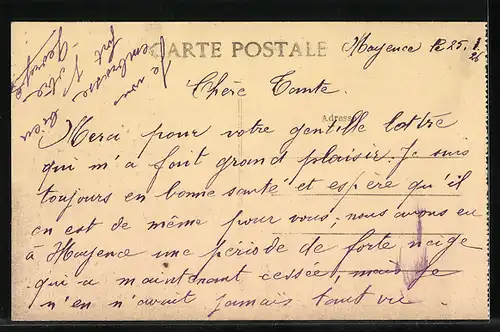 CARTE POSTALE
Mayence le 25.1.26
Chère Tante.
Adresse
Merci pour votre gentille lettre
qui m'a fait grand plaisir. Je suis
toujours en bonne santé et espère qu'il
en est de même pour vous; nous avons eu
à Mayence une période de forte neige
qui a maintenant cessée, mais je
n'en n'avait jamais tant vue.
Je vous
embrasse
fort
Votre
neveu